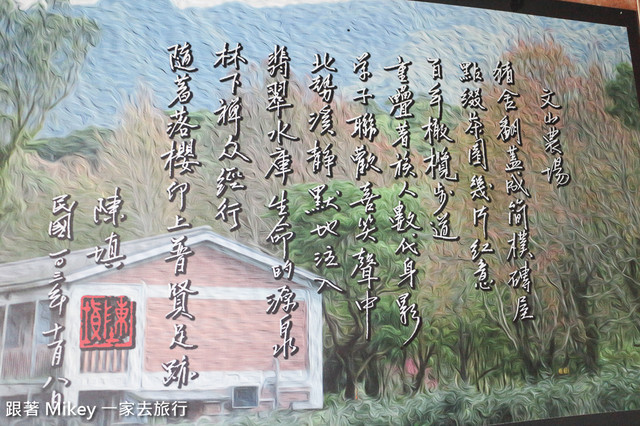 文山農場
豬舍翻蓋成簡樸磚屋
點綴茶園幾片紅意
百年橄欖步道
重疊著族人數代身影
學子聯歡喜笑聲中
北勢溪靜默地注入
翡翠水庫生命的源泉
林下禪友經行
隨著落櫻印上普賢足跡
陳填
民國一〇三年十月八日
陳填
跟著 Mikey 一家去旅行